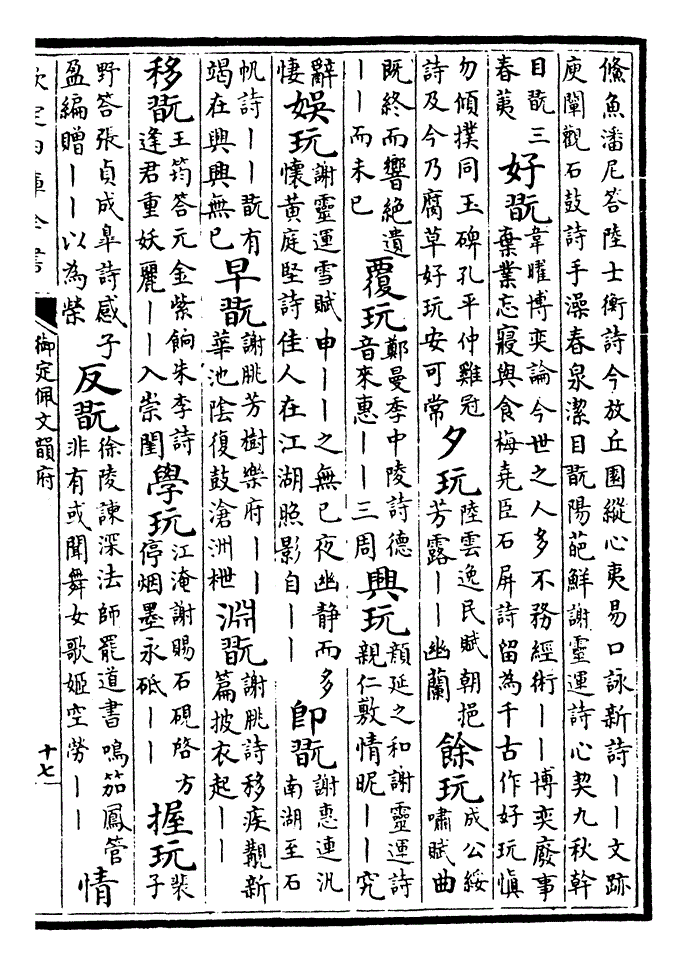 鯈魚潘尼答陸士衡詩今放丘園縱心夷易口詠新詩丨丨文跡
庾闡觀石鼓詩手澡春泉潔目翫陽葩鮮謝靈運詩心契九秋幹
目翫三
春荑
好翫
韋曜博奕論今世之人多不務經術丨丨博奕廢事
棄業忘寢與食梅堯臣石屏詩留為千古作好玩慎
勿傾撲同玉碑孔平仲雞冠
詩及今乃腐草好玩安可常
夕玩
陸雲逸民賦朝挹
芳露丨丨幽蘭
餘玩
成公綏
嘯賦曲
既終而響絕遺
丨丨而未已
覆玩
鄭曼季中陵詩德
音來惠丨丨三周
興玩
顏延之和謝靈運詩
親仁敷情昵丨丨究
辭
悽
娛玩
謝靈運雪賦申丨丨之無已夜幽静而多
懷黄庭堅詩佳人在江湖照影自丨丨
即翫
謝惠連汎
南湖至石
帆詩丨丨翫有
竭在興興無已
早翫
謝朓芳樹樂府丨丨
華池陰復鼓滄洲枻
淵翫
謝朓詩移疾覿新
篇披衣起丨丨
移翫
王筠答元金紫餉朱李詩
逢君重妖麗丨丨入崇閨
學玩
江淹謝賜石硯啓方
停烟墨永砥丨丨
握玩
裴
子
野答張貞成皐詩感子
盈編贈丨丨以為榮
反翫
徐陵諫深法師罷道書鳴笳鳳管
非有或聞舞女歌姬空勞丨丨
情
欽定四庫全書
御定佩文韻府
十七